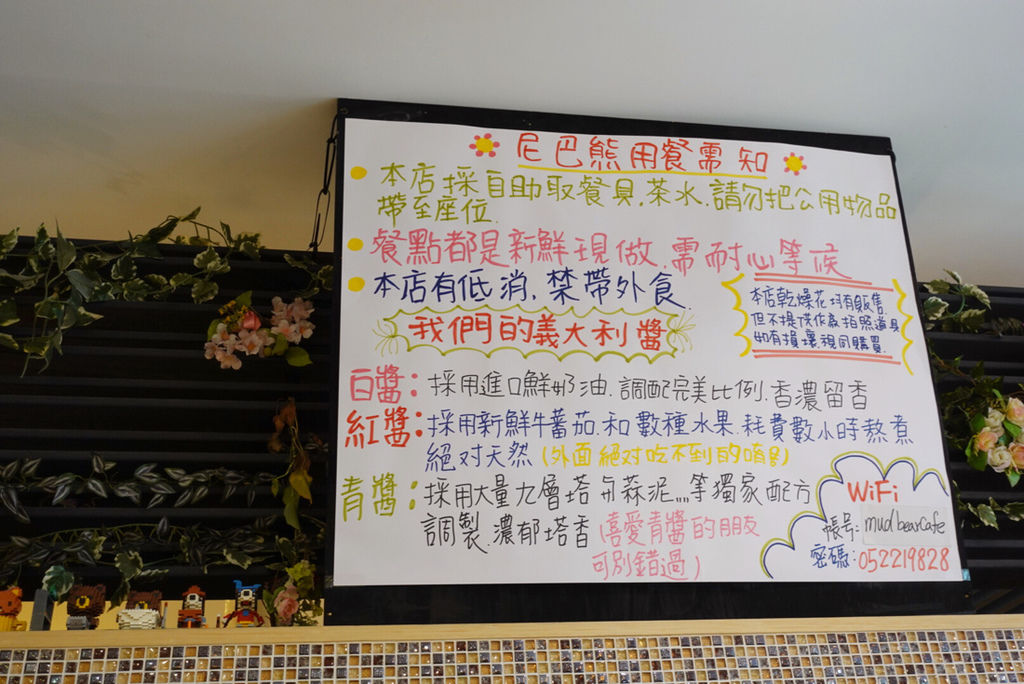 尼巴熊用餐需知
本店採自助取餐具,茶水.請勿把公用物品
帶至座位.
餐點都是新鮮現做.需耐心等候
本店有低消.禁帶外食
本店乾燥花均有販售.
但不提供作為拍照道具
如有損壞視同購買.
我們的義大利醬
白醬:採用進口鮮奶油.調配完美比例.香濃留香
紅醬:採用新鮮牛蕃茄.和數種水果.耗費數小時熬煮
絕对天然(外面絕对吃不到的唷!)
青醬:採用大量九層塔 蒜泥,,,,等獨家配方
調製.濃郁塔香(喜愛青醬的朋友
可別錯過)
WiFi
帳号:mudbearcafe
密碼:052219828